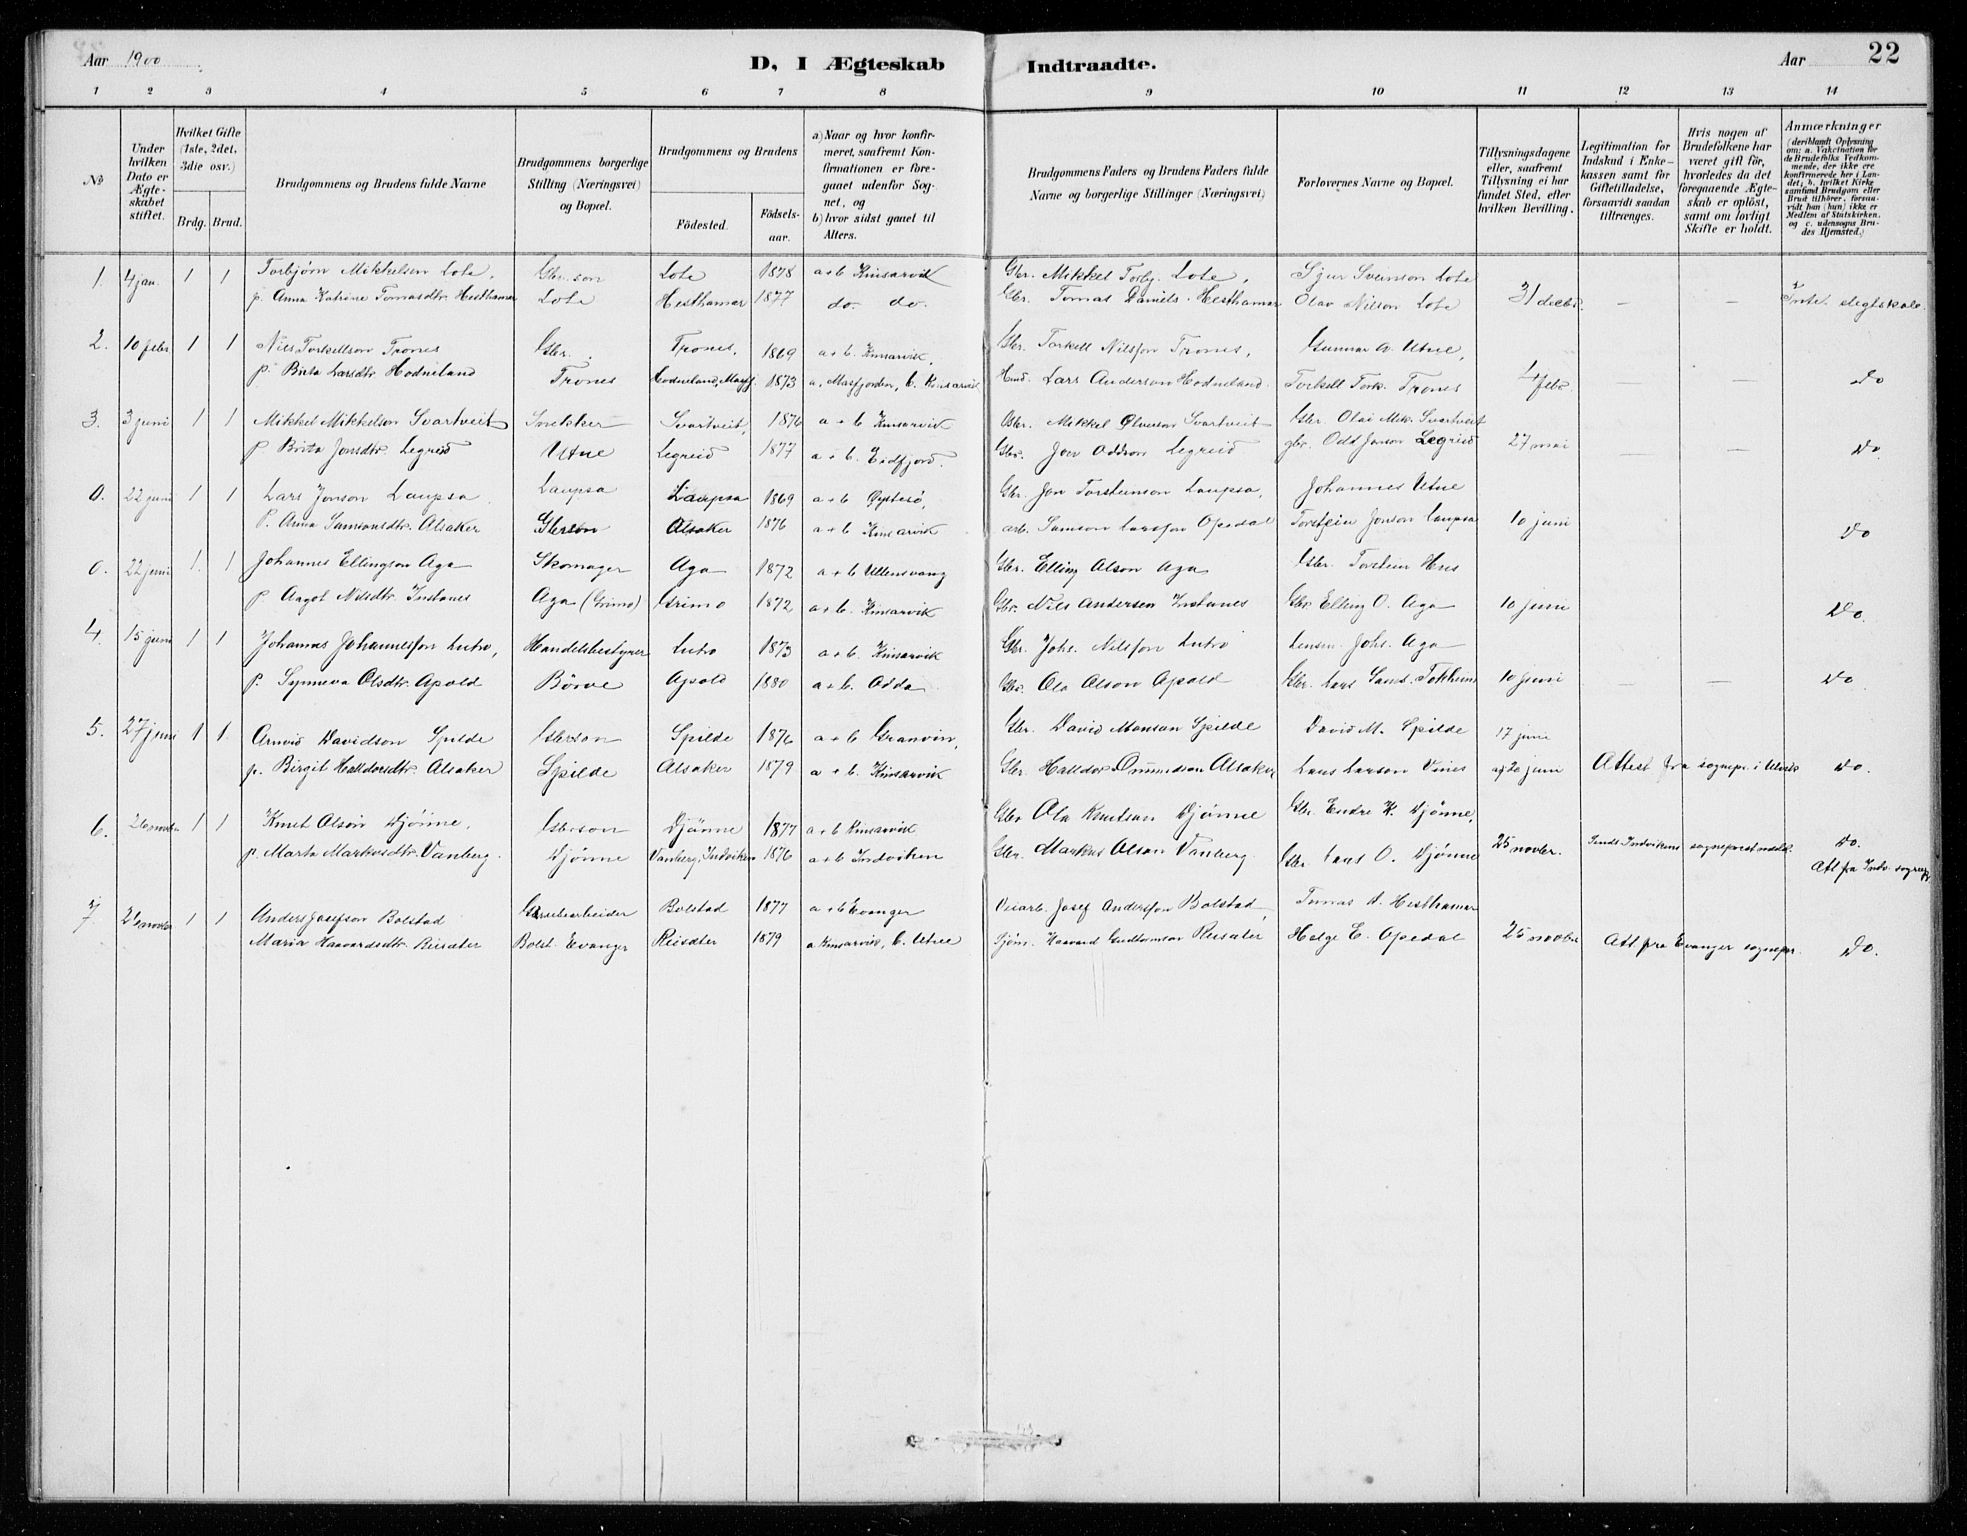 Aar 1900
D, I Ægteskab Indtraadte.
Aar
22
1 2 3 4 5 6 7 8 9 10 11 12 13 14
No
Under hvilken Dato er Ægteskabet stiftet.
Hvilket Gifte (1ste, 2det, 3die osv.)
Brdg. Brud.
Brudgommens og Brudens fulde Navne
Brudgommens borgerlige Stilling (Næringsvei) og Bopæl.
Brudgommens og Brudens
Födested.
Födselsaar.
a) Naar og hvor konfirmeret, saafremt Konfirmationen er foregaaet udenfor Sognet, og
b) hvor sidst gaaet til Alters.
Brudgommens Faders og Brudens Faders fulde Navne og borgerlige Stillinger (Næringsvei)
Forlovernes Navne og Bopæl.
Tillysningsdagene eller, saafremt Tillysning ei har fundet Sted, efter hvilken Bevilling.
Legitimation for Indskud i Enkekassen samt for Giftetilladelse, forsaavidt saadan tiltrænges.
Hvis nogen af Brudefolkene har været gift før, hvorledes da det foregaaende Ægteskab er oplöst, samt om lovligt Skifte er holdt.
Anmærkninger (deriblandt Oplysning om: a. Vakcination for de Brudefolks Vedkommende, der ikke ere konfirmerede her i Landet; b. hvilket Kirkesamfund Brudgom eller Brud tilhörer, forsaavidt han (hun) ikke er Medlem af Statskirken, og c. udensogns Brudes Hjemsted.)
1. 4 jan. 1 1 Torbjørn Mikkelson Lote, Gbr. son Lote 1878 a+b Kinsarvik Gbr. Mikkel Torbj. Lote, Sjur Svenson Lote
p. Anna Katrine Tomasdtr. Hesthamar Lote Hesthamar 1877 do. do. Gbr. Tomas Daniels. Hesthamar Olav Nilson Lote 31 decbr. — — Inte. slegtskab.
2. 10 febr 1 1 Nils Torkellson Trones Gbr. Trones, 1869 a+b. Kinsarvik, Gbr. Torkell Nilsson Trones, Gunnar A. Utne,
p. Brita Larsdtr. Hodneland Trones Hodneland, Masfj. 1873 a, Masfjorden, b. Kinsarvik Husd. Lars Anderson Hodneland. Torkell Tork. Trones 4 febr — Do
3. 3 juni 1 1 Mikkel Mikkelson Svartveit Snekker Svartveit, 1876 a+b Kinsarvik Gbr. Mikkel Olveson Svartveit Gbr. Olai Mik. Svartveit
p Brita Jonsdtr. Legreid Utne Legreid 1877 a+b. Eidfjord. Gbr. Jon Oddson Legreid gbr. Odd Jonson Legreid 27 mai — — Do.
0. 22 juni 1 1 Lars Jonson Laupsa Laupsa Laupsa 1869 a+b Øystesø, Gbr. Jon Torsteinson Laupsa, Johannes Utne
p. Anna Samsonsdtr. Alsaker Gbrson Alsaker 1876 a+b Kinsarvik arb. Samson Larsson Opedal Torstein Jonson Laupsa 10 juni Do
0. 22 juni 1. 1 Johannes Ellingson Aga Skomager Aga 1872 a+b Ullensvang Gbr. Elling Olson Aga Gbr. Torstein Hus
p. Angot Nilsdtr. Instanes Aga (Grimo) Grimo 1872 a+b. Kinsarvik Gbr. Nils Andersen Instanes Gbr. Elling O. Aga 10 juni Do.
4. 15 juni 1 1 Johannes Johannesson Lutro, Handelsbestyrer Lutro 1873 a+b. Kinsarvik Gbr. Johs. Nilsson Lutro Lensm. Johs. Aga
p. Synneva Olsdtr. Apold Børve Apold 1880 a+b. Odda Gbr. Ola Olson Apold Gbr. Lars Sams. Tokheim 10 juni — — Do.
5. 27 juni 1 1. Arnvid Davidson Spilde Gbrson Spilde 1876 a+b Granvin, Gbr. David Monsan Spilde David M. Spilde 17 juni
p. Birgit Halldorsdtr. Alsaker Spilde Alsaker 1879 a+b. Kinsarvik Gbr. Halldor Amundson Alsaker Lars Larson Vines af 20 juni Attest fra sognepr. i Ulvik Do.
6. 26 novbr 1 1 Knut Olson Djønne, Gbrson Djønne 1877 a+b Kinsarvik Gbr. Ola Knutson Djønne Gbr. Endre K. Djønne,
p. Marta Markusdtr. Vanberg. Djønne Vanberg, Indviken 1876 a+b Indviken Gbr. Markus Olson Vanberg. Gbr. Lars O. Djønne 25 novbr. Sendt Indvikens sogneprest meld. Do. Att fra Indv. sognepr
7 26 novbr 1 1 Anders Josefson Bolstad Bolstad 1877 a+b Evanger Veiarb. Josef Andersson Bolstad, Tomas D. Hesthamar
Maria Haavardsdtr. Reisæter Bolst. Evanger Reisæter 1879 a Kinsarvik, b. Utne Sjöm. Haavard Guttormson Reisæter Helge E. Opedal 25 novbr Att. fra Evanger sognepr. Do.